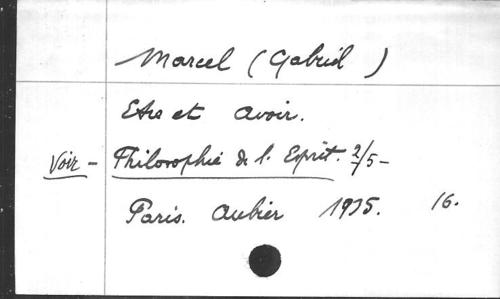 Marcel (Gabriel)
Etre et avoir.
Voir - Philosophie de l. Esprit. 2/5 -
Paris. Aubier 1935. 16.